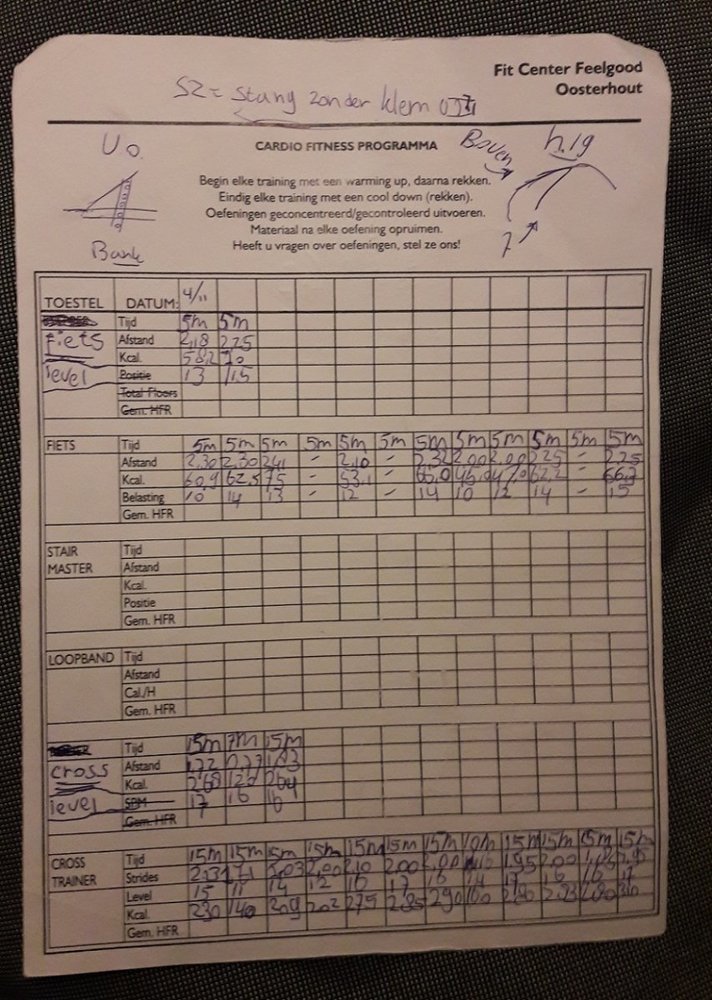 Fit Center Feelgood
Oosterhout
SZ = Stang zonder klem
U o.
CARDIO FITNESS PROGRAMMA
Boven
Begin elke training met een warming up, daarna rekken.
Eindig elke training met een cool down (rekken).
Oefeningen geconcentreerd/gecontroleerd uitvoeren.
Materiaal na elke oefening opruimen.
Bank
Heeft u vragen over oefeningen, stel ze ons!
TOESTEL DATUM: 4/11
Tijd 5m 5m
Fiets Afstand 2,18 2,25
Kcal. 58,2 70
level Positie 13 11,5
Total Floors
Gem. HFR
FIETS Tijd 5m 5m 5m 5m 5m 5m 5m 5m 5m 5m 5m 5m
Afstand 2,30 2,30 2,41 - 2,10 - 2,32 2,00 2,00 2,25 - 2,25
Kcal. 60,9 62,5 75 - 53,1 - 62,2 -
Belasting 10 14 13 - 12 - 14 10 12 14 - 15
Gem. HFR
STAIR Tijd
MASTER Afstand
Kcal.
Positie
Gem. HFR
LOOPBAND Tijd
Afstand
Cal./H
Gem. HFR
Tijd 15m 7m 15m
cross Afstand 1,72 0,77
Kcal. 268 120 264
level SPM 17 16 16
Gem. HFR
CROSS Tijd 15m 15m 15m 15m 15m 15m 15m 10m 15m 15m 15m 15m
TRAINER Strides 2,03 2,00 2,10 2,00 2,00 1,95 2,00
Level 15 11 14 12 16 17 16 14 17 16 16 17
Kcal. 230 140 209 202 275 285 290 160 280
Gem. HFR